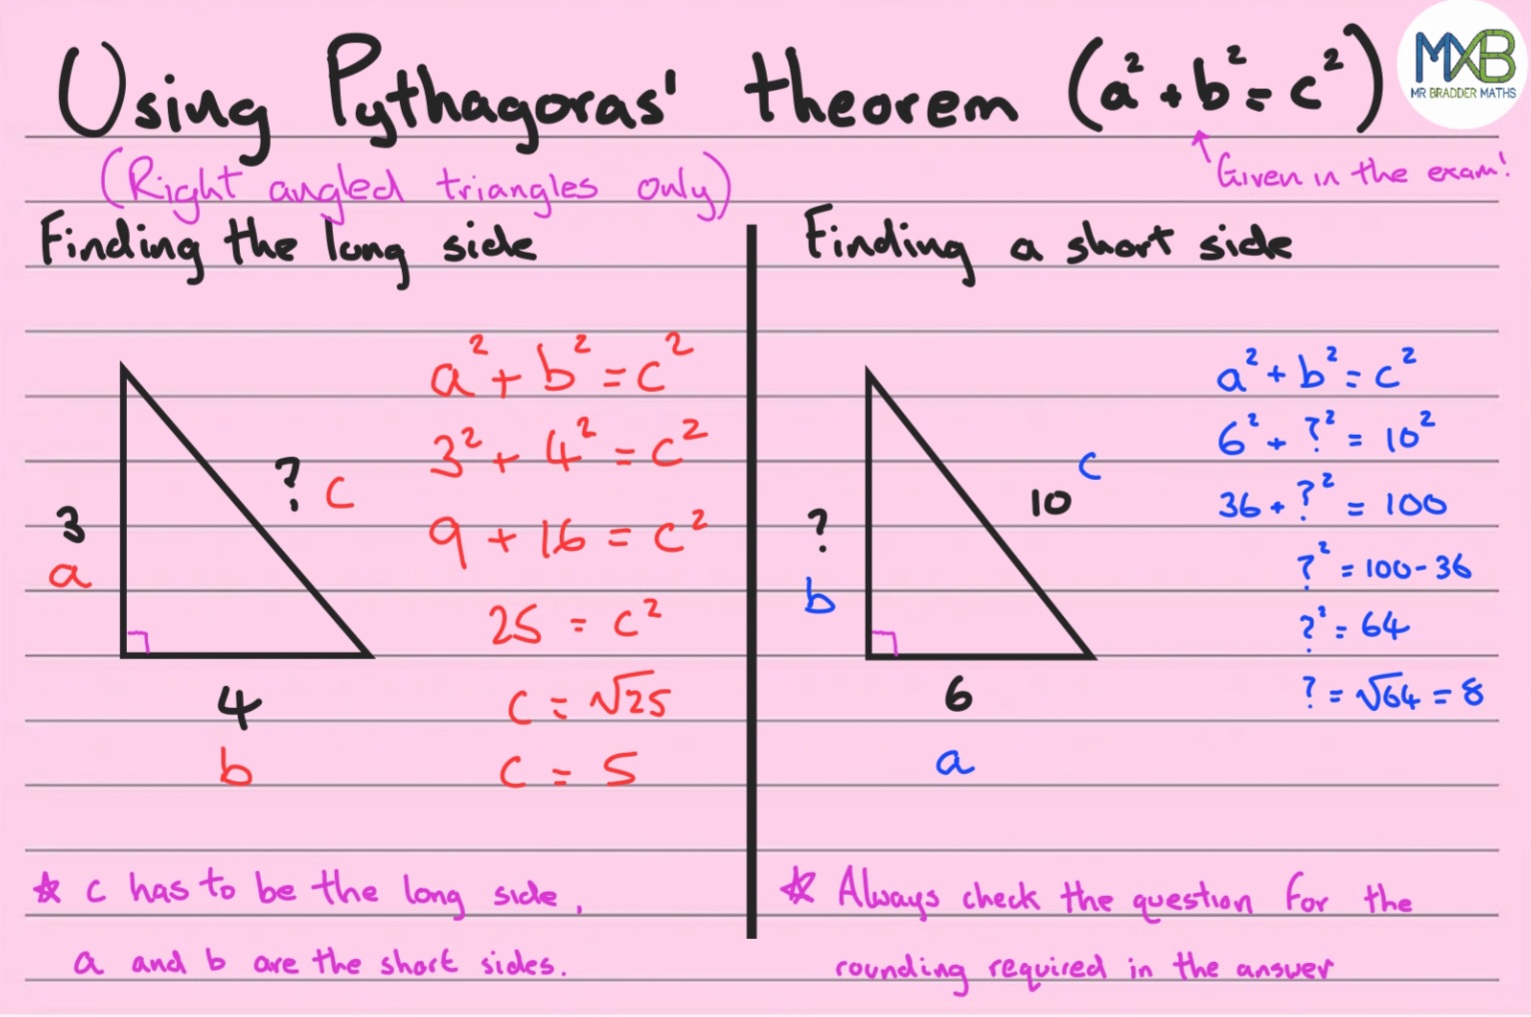 Using Pythagoras' theorem (a² + b² = c²)
MXB
MR BRADDER MATHS
(Right angled triangles only)
Given in the exam!
Finding the long side
3
a
? c
4
b
a² + b² = c²
3² + 4² = c²
9 + 16 = c²
25 = c²
c = √25
c = 5
☆ c has to be the long side,
a and b are the short sides.
Finding a short side
?
b
c
10
6
a
a² + b² = c²
6² + ?² = 10²
36 + ?² = 100
?² = 100 - 36
?² = 64
? = √64 = 8
☆ Always check the question for the
rounding required in the answer